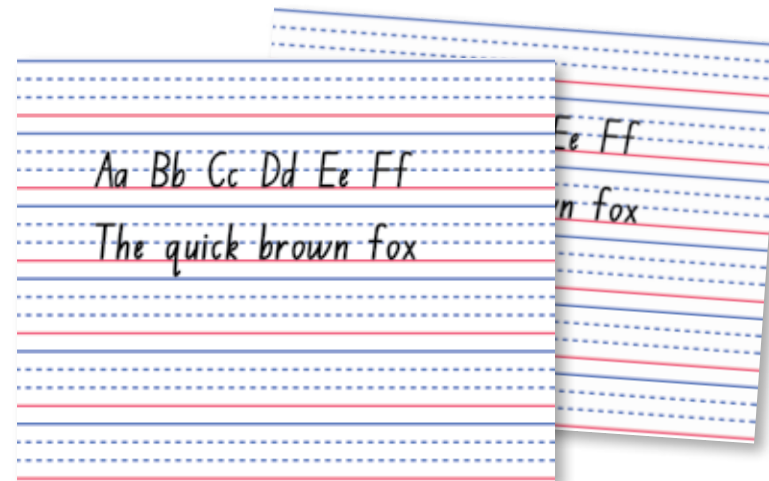 Aa Bb Cc Dd Ee Ff
The quick brown fox
Ee Ff
n fox